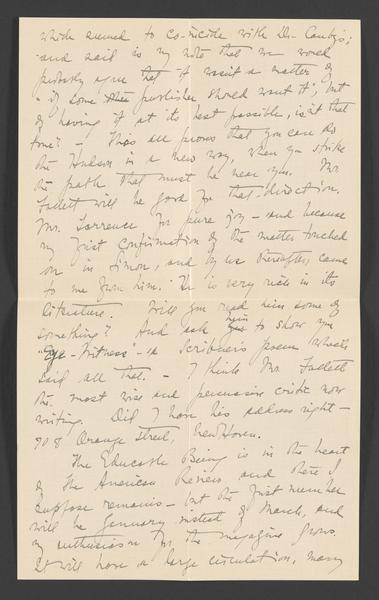 which seemed to co-incide with Dr. Canby's;
and said in my note that we would
probably agree that it wasn't a matter of
"if some publisher should want it", but
of having it at its best possible, isn't that
true? - This all proves that you can do
the Hudson in a new way, when you strike
the path that must be near you. Mr.
Follett will be good for that direction.
Mr. Torrence for pure joy - and because
my first confirmation of the matter touched
on in Simon, and by us thereafter, came
to me from him. He is very rich in its
literature. Will you read him some of
something? And ask him to show you
"Eye-Witness" - a Scribner's poem which
said all that. - I think Mr. Follett
the most wise and persuasive critic now
writing. Did I have his address right -
908 Orange Street, New Haven.
The Educable Being is in the heart
of the American Review and there I
suppose remains - but the first number
will be January instead of March, and
my enthusiasm for the magazine grows.
It will have a large circulation, many